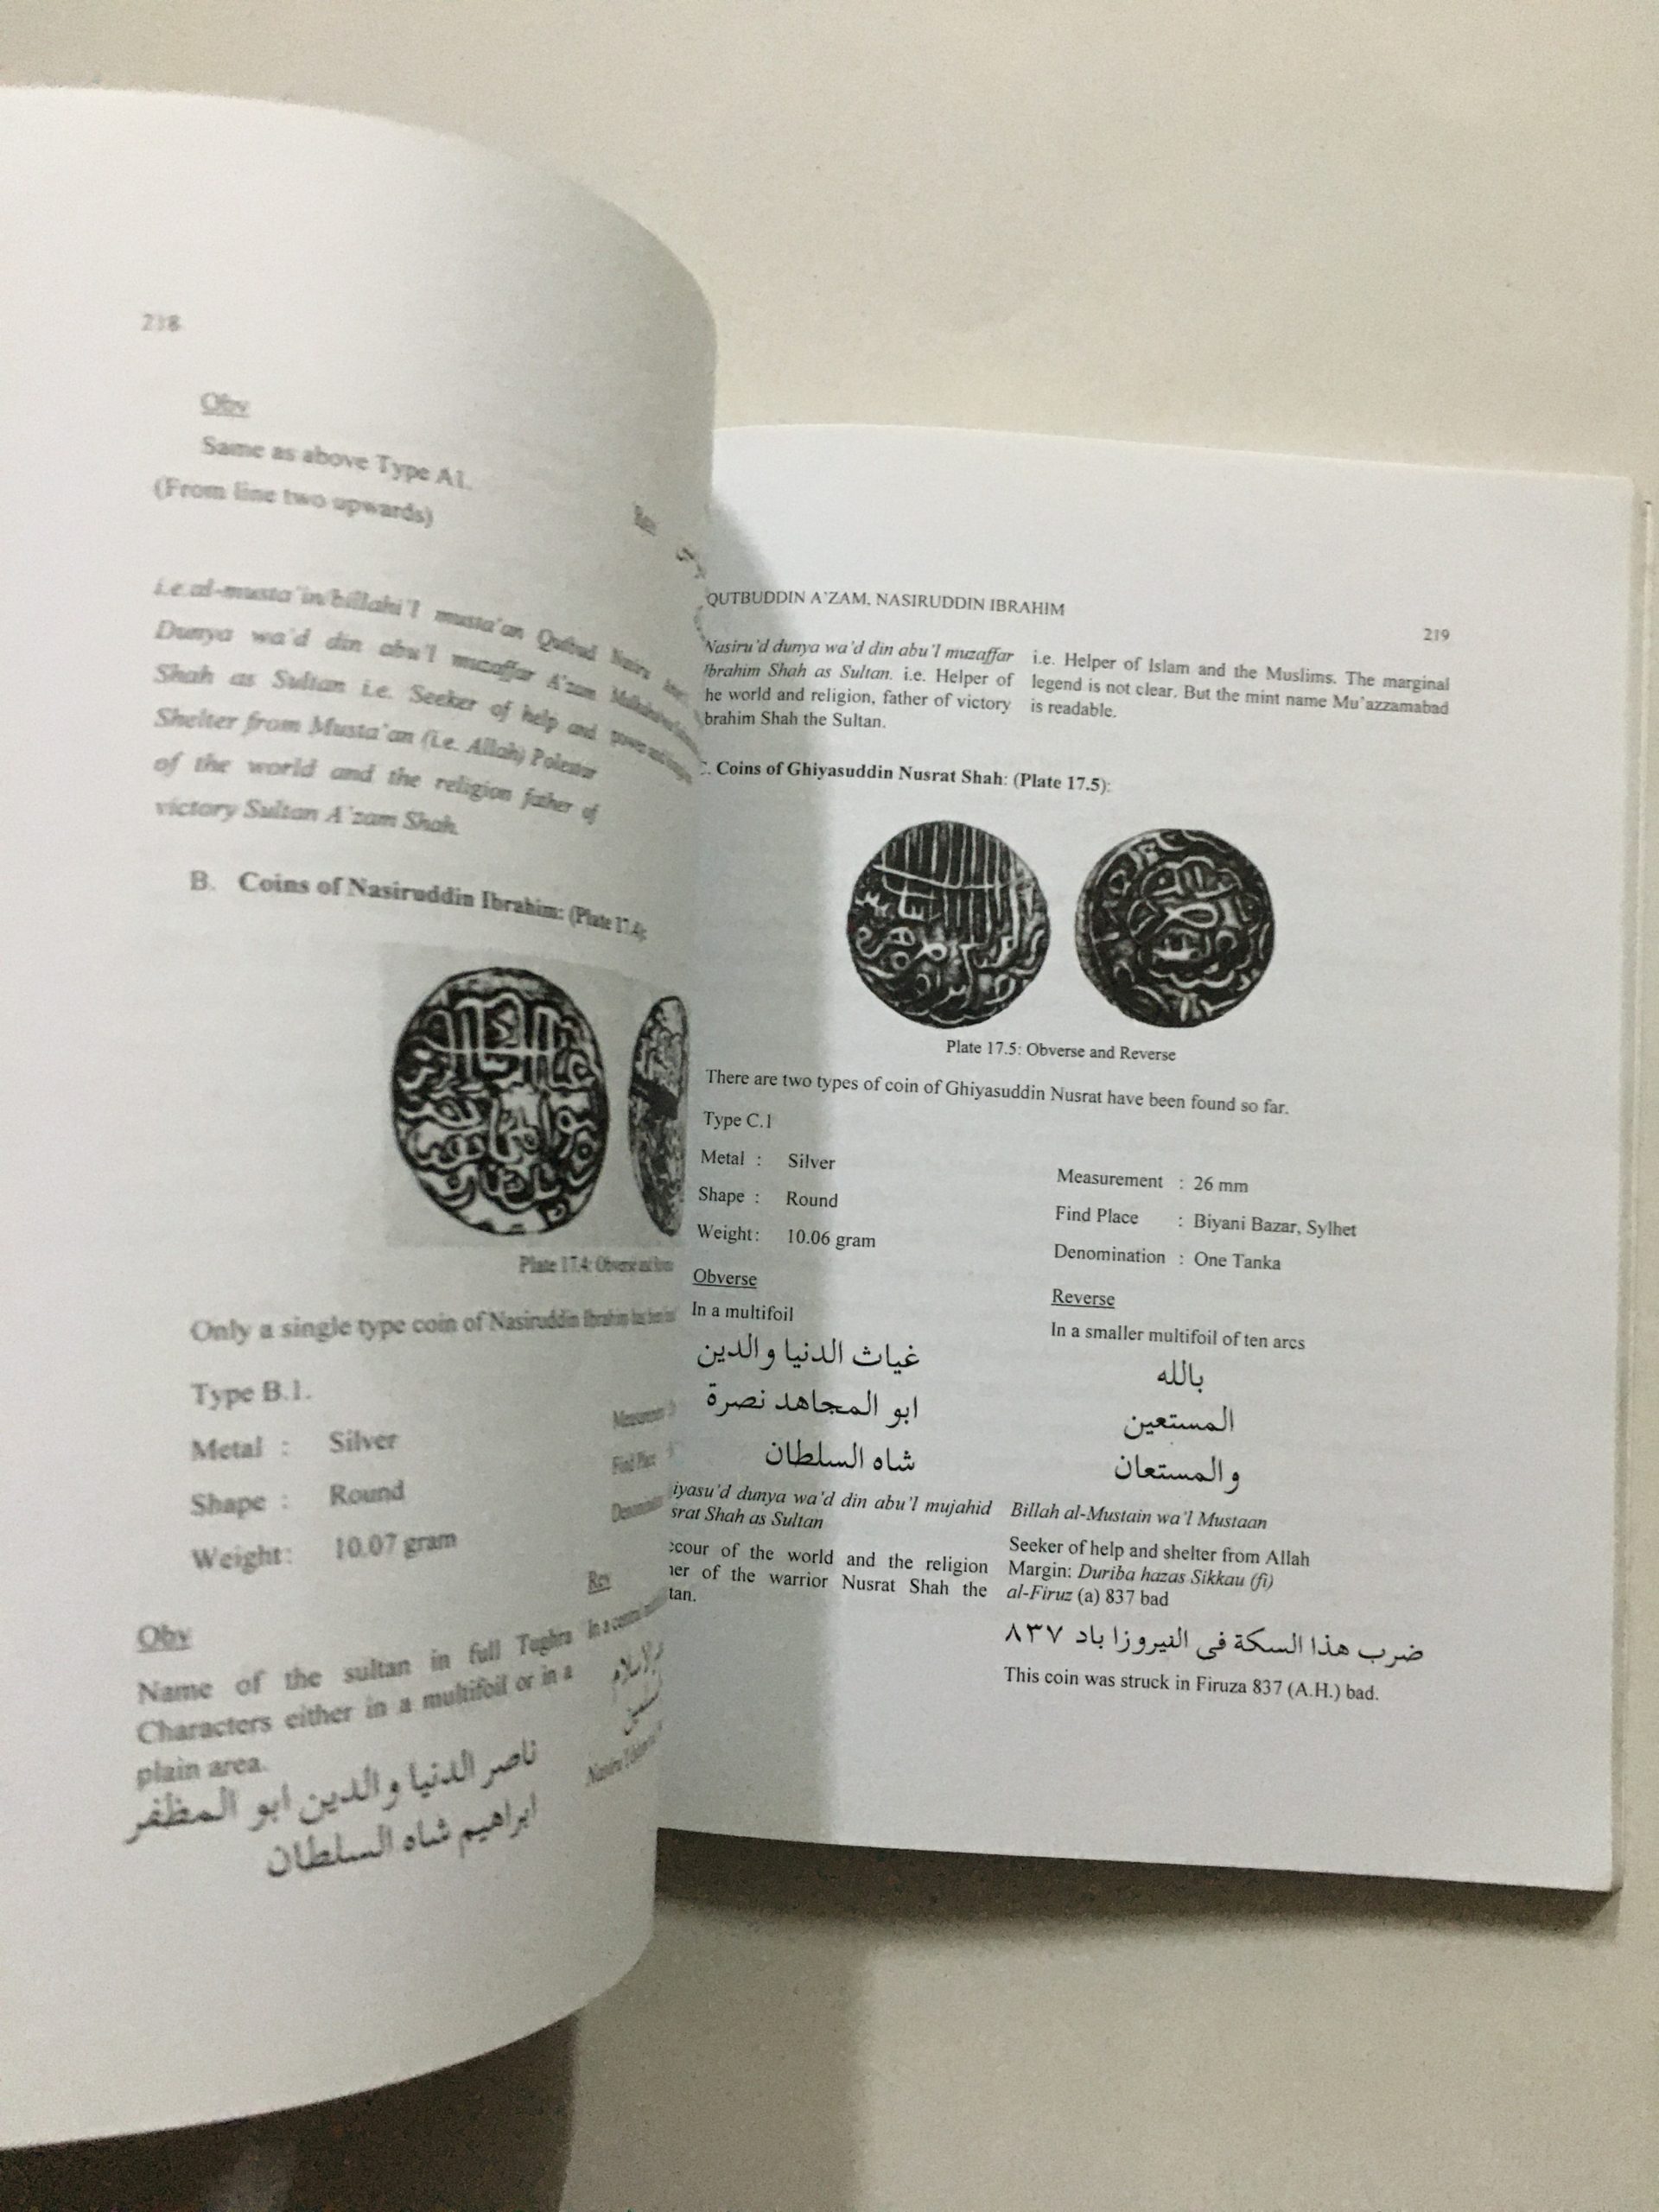 218
Obv
Same as above Type A1.
(From line two upwards)
Rev
i.e.al-musta'in/billahi'l musta'an Qutbud
Dunya wa'd din abu'l muzaffar A'zam
Shah as Sultan i.e. Seeker of help and
Shelter from Musta'an (i.e. Allah) Polestar
of the world and the religion father of
victory Sultan A'zam Shah.
B. Coins of Nasiruddin Ibrahim: (Plate 17.4):
Plate 17.4: Obverse and
Only a single type coin of Nasiruddin Ibrahim has been
Type B.1.
Metal : Silver
Shape : Round
Weight: 10.07 gram
Measurement
Find Place
Obv
Name of the sultan in full Tughra
Characters either in a multifoil or in a
plain area.
ناصر الدنيا والدين ابو المظفر
ابراهيم شاه السلطان
Rev
In a
QUTBUDDIN A'ZAM, NASIRUDDIN IBRAHIM
219
Nasiru'd dunya wa'd din abu'l muzaffar
Ibrahim Shah as Sultan. i.e. Helper of
he world and religion, father of victory
brahim Shah the Sultan.
i.e. Helper of Islam and the Muslims. The marginal
legend is not clear. But the mint name Mu'azzamabad
is readable.
C. Coins of Ghiyasuddin Nusrat Shah: (Plate 17.5):
Plate 17.5: Obverse and Reverse
There are two types of coin of Ghiyasuddin Nusrat have been found so far.
Type C.1
Metal : Silver
Shape : Round
Weight: 10.06 gram
Measurement : 26 mm
Find Place : Biyani Bazar, Sylhet
Denomination : One Tanka
Obverse
In a multifoil
غياث الدنيا والدين
ابو المجاهد نصرة
شاه السلطان
iyasu'd dunya wa'd din abu'l mujahid
srat Shah as Sultan
ccour of the world and the religion
her of the warrior Nusrat Shah the
tan.
Reverse
In a smaller multifoil of ten arcs
بالله
المستعين
والمستعان
Billah al-Mustain wa'l Mustaan
Seeker of help and shelter from Allah
Margin: Duriba hazas Sikkau (fi)
al-Firuz (a) 837 bad
ضرب هذا السكة فى الفيروزا باد ٨٣٧
This coin was struck in Firuza 837 (A.H.) bad.